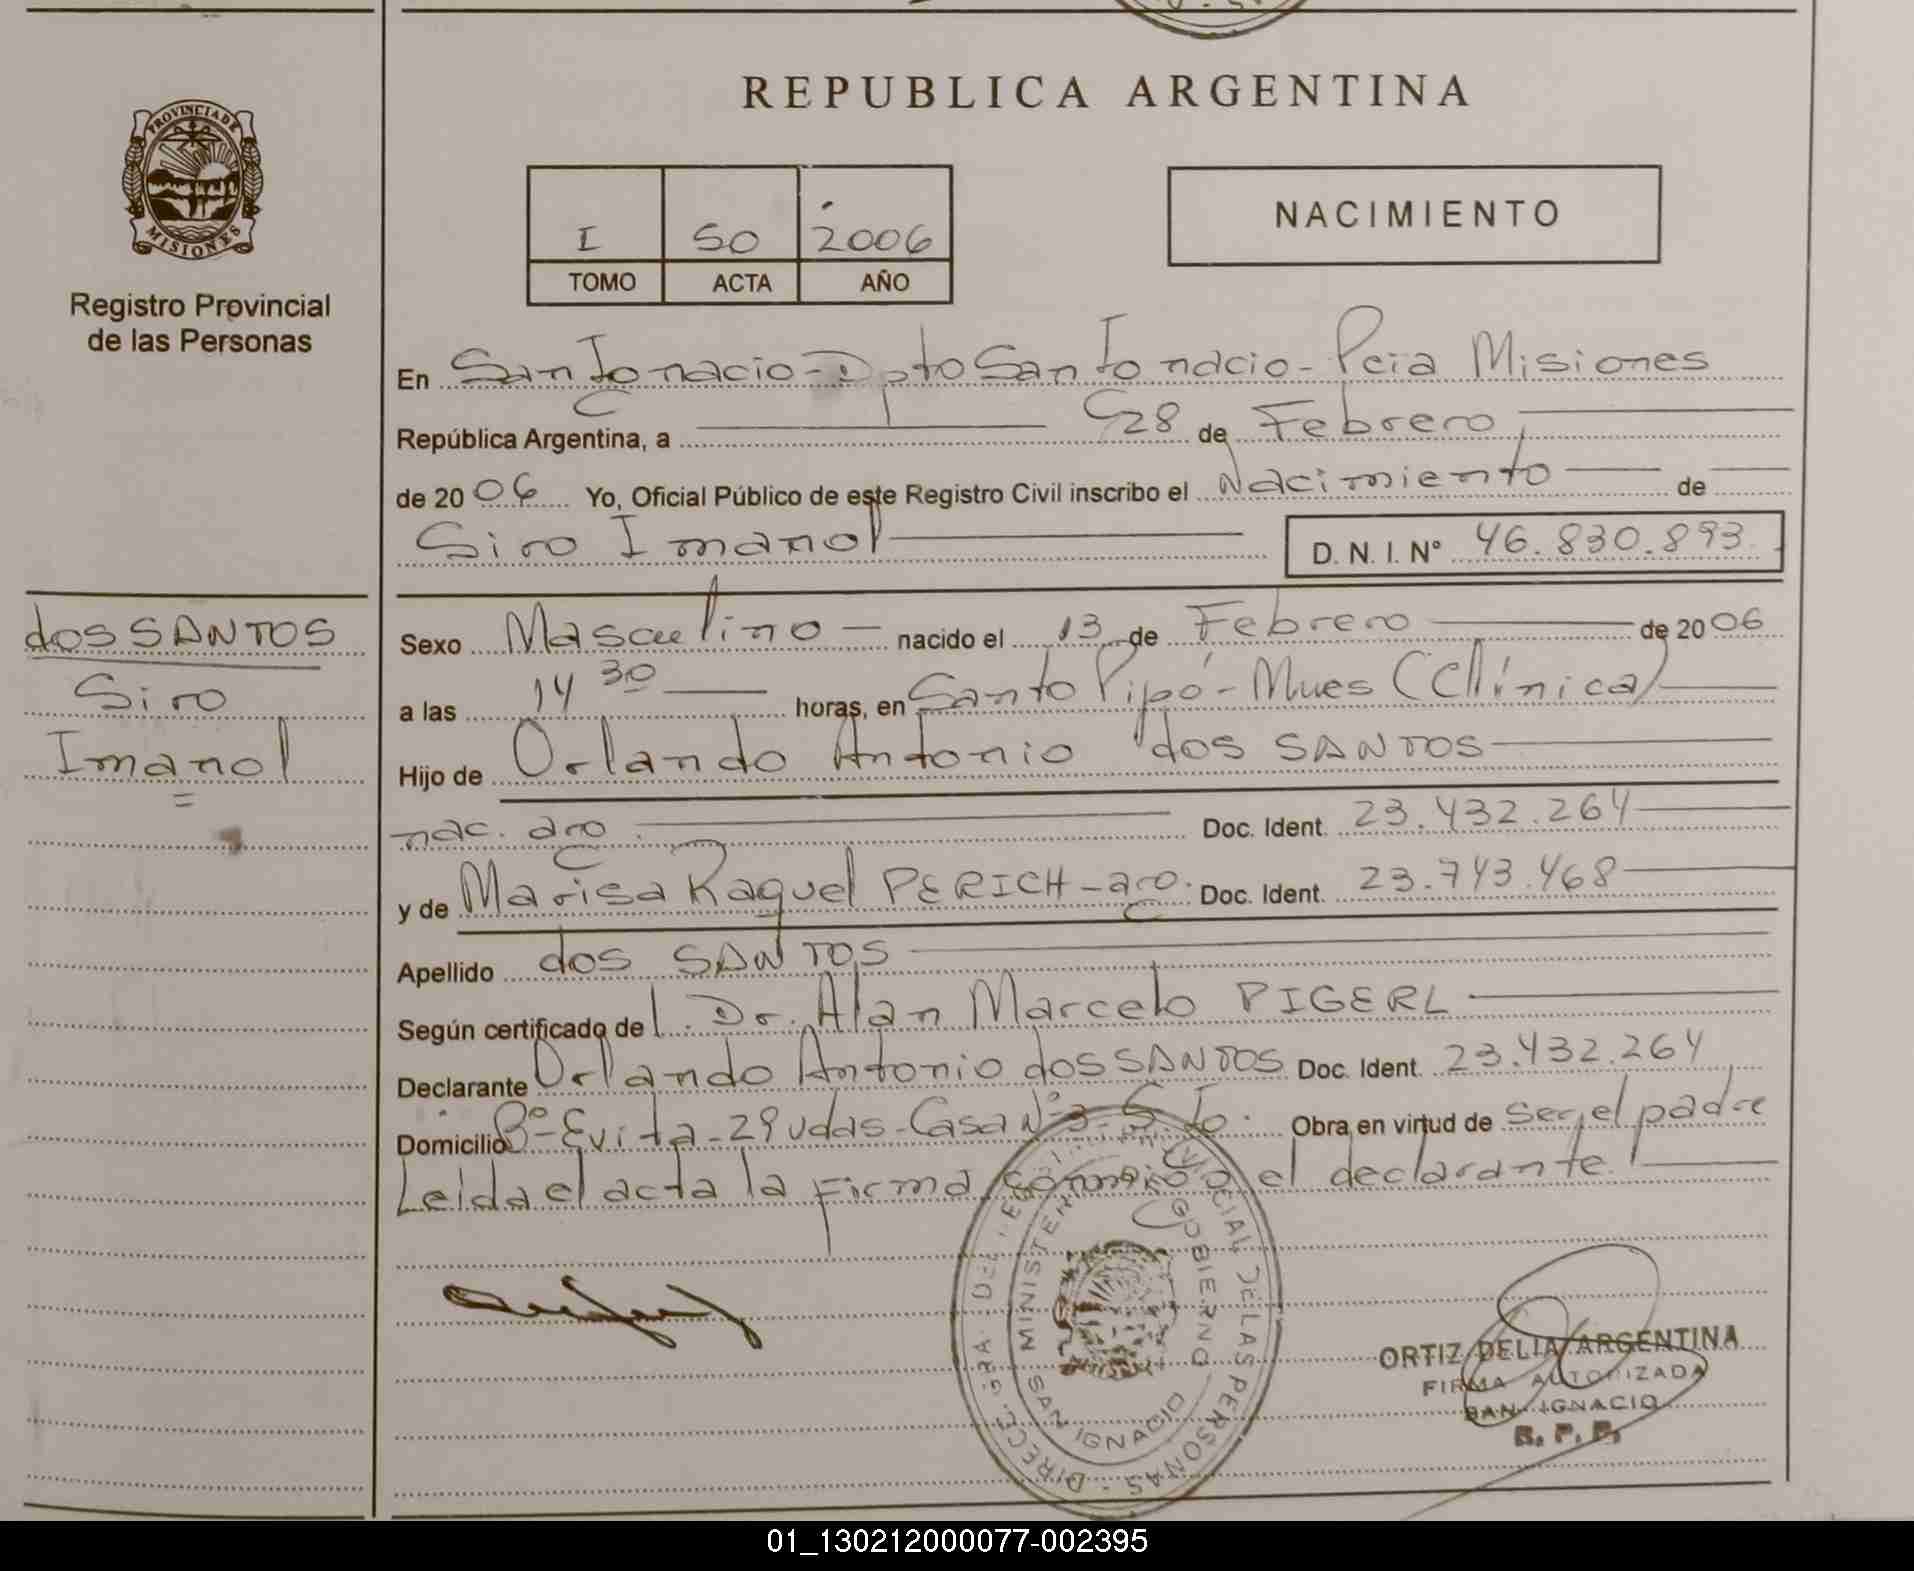 REPUBLICA ARGENTINA
PROVINCIA DE
MISIONES
Registro Provincial
de las Personas
I 50 2006
TOMO ACTA AÑO
NACIMIENTO
En San Ignacio - Dpto San Ignacio - Pcia Misiones
República Argentina, a 28 de Febrero
de 20 06 Yo, Oficial Público de este Registro Civil inscribo el Nacimiento de
Siro Imanol D. N. I. N° 46.830.893
dos SANTOS
Siro
Imanol
Sexo Masculino nacido el 13 de Febrero de 20 06
a las 14 30 horas, en Santo Pipó - Mnes (Clínica)
Hijo de Orlando Antonio dos SANTOS
nac. arg. Doc. Ident. 23.432.264
y de Marisa Raquel PERICH - arg. Doc. Ident. 23.743.468
Apellido dos SANTOS
Según certificado del Dr. Alan Marcelo PIGERL
Declarante Orlando Antonio dos SANTOS Doc. Ident. 23.432.264
Domicilio B° Evita - 29 vdas - Casa N° 3 - S. I. Obra en virtud de ser el padre
Leida el acta la firma conmigo el declarante
MINISTERIO GOBIERNO
SAN IGNACIO
DE LAS PERSONAS
ORTIZ DELIA ARGENTINA
FIRMA AUTORIZADA
SAN IGNACIO
R. P. P.
01_130212000077-002395